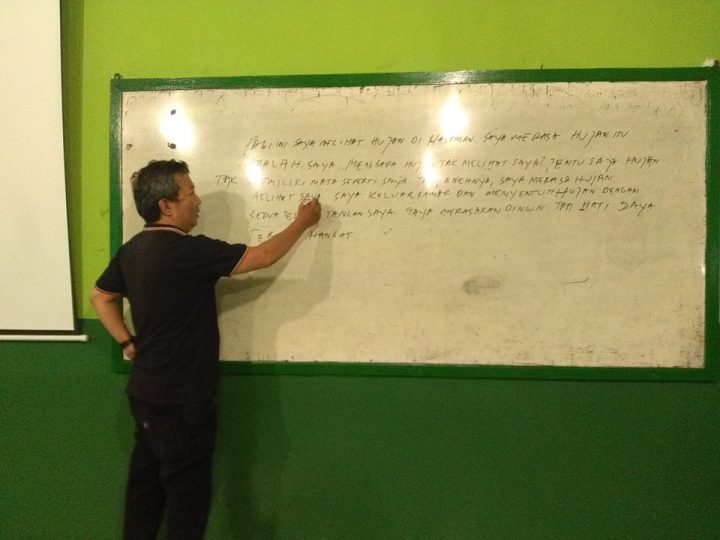 PAGI INI SAYA MELIHAT HUJAN DI HALAMAN SAYA MERASA HUJAN ITU
ADALAH SAYA. MENGAPA TAK MELIHAT SAYA? TENTU SAJA HUJAN
TAK MEMILIKI MATA SEPERTI SAYA ANEHNYA, SAYA MERASA HUJAN
MELIHAT SAYA SAYA KELUAR KAMAR DAN MENYENTUH HUJAN DENGAN
KEDUA TANGAN SAYA SAYA MERASAKAN DINGIN TAPI HATI SAYA
HANGAT